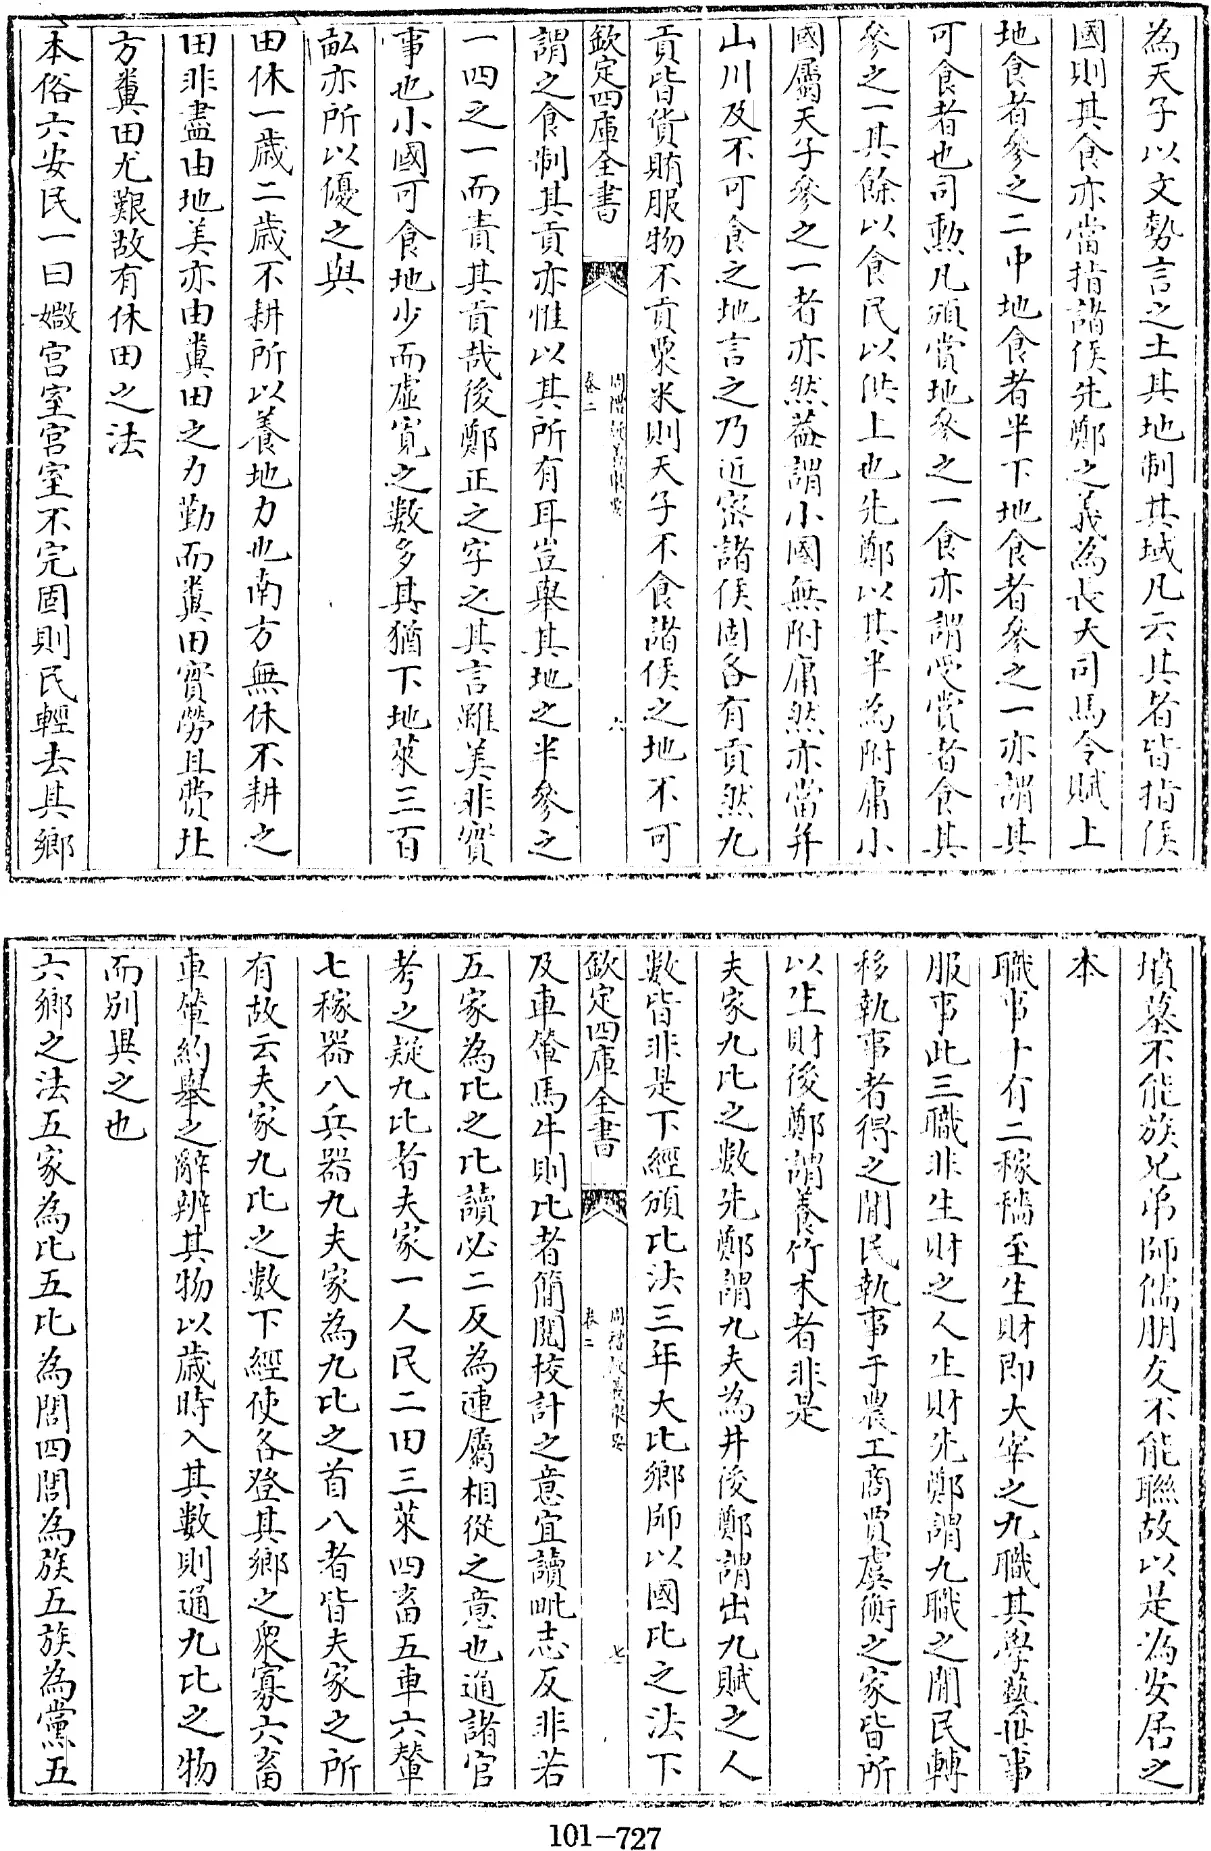 為天子以文勢言之土其地制其域凡云其者皆指侯
國則其食亦當指諸侯先鄭之義為長大司馬令賦上
地食者參之二中地食者半下地食者參之一亦謂其
可食者也司勲凡頒賞地參之一食亦謂受賞者食其
參之一其餘以食民以供上也先鄭以其半為附庸小
國屬天子參之一者亦然葢謂小國無附庸然亦當并
山川及不可食之地言之乃近宻諸侯固各有貢然九
貢皆貨賄服物不貢粟米則天子不食諸侯之地不可
欽定四庫全書
卷二
六
謂之食制其貢亦惟以其所有耳豈舉其地之半參之
一四之一而責其貢哉後鄭正之字之其言雖美非實
事也小國可食地少而虛寬之數多其猶下地萊三百
畝亦所以優之與
田休一歳二歳不耕所以養地力也南方無休不耕之
田非盡由地美亦由糞田之力勤而糞田實勞且費北
方糞田尤艱故有休田之法
本俗六安民一曰媺宫室宫室不完固則民輕去其鄉
墳墓不能族兄弟師儒朋友不能聯故以是為安居之
本
職事十有二稼穡至生財即大宰之九職其學藝世事
服事此三職非生財之人生財先鄭謂九職之閒民轉
移執事者得之閒民執事于農工商賈虞衡之家皆所
以生財後鄭謂養竹木者非是
夫家九比之數先鄭謂九夫為井後鄭謂出九賦之人
數皆非是下經頒比法三年大比鄉師以國比之法下
欽定四庫全書
卷二
七
及車輦馬牛則比者簡閲挍計之意宜讀毗志反非若
五家為比之比讀必二反為連屬相從之意也通諸官
考之疑九比者夫家一人民二田三萊四畜五車六輦
七稼器八兵器九夫家為九比之首八者皆夫家之所
有故云夫家九比之數下經使各登其鄉之衆寡六畜
車輦約舉之辭辨其物以歳時入其數則通九比之物
而别異之也
六鄉之法五家為比五比為閭四閭為族五族為黨五
101-727